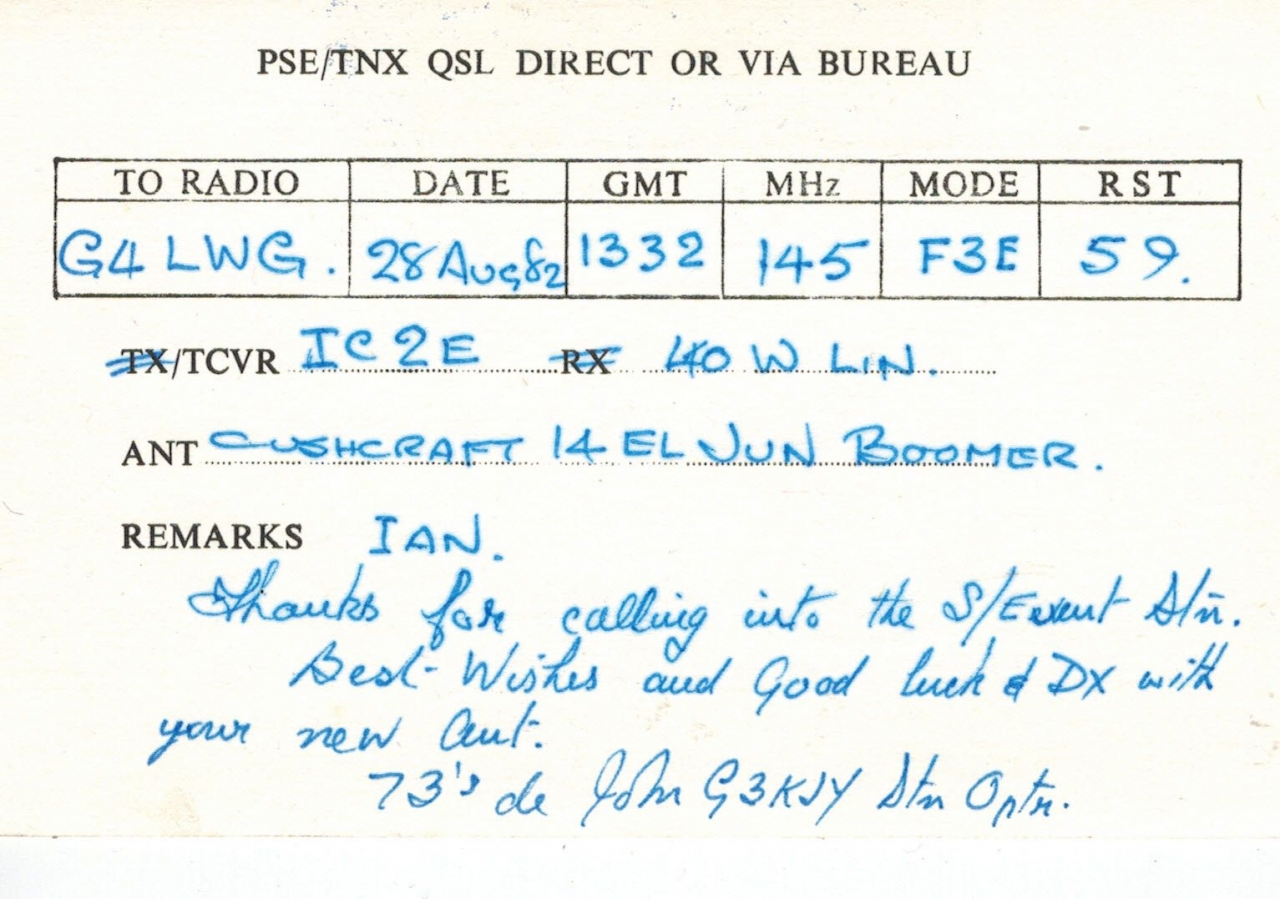 PSE/TNX QSL DIRECT OR VIA BUREAU
TO RADIO DATE GMT MHz MODE RST
G4 LWG. 28 Aug 82 1332 145 F3E 59.
TX/TCVR IC2E RX 40 W LIN.
ANT CUSHCRAFT 14 EL JUN BOOMER.
REMARKS IAN.
Thanks for calling into the S/Event Stn.
Best Wishes and Good luck & DX with
your new ant.
73's de John G3KJY Stn Optr.